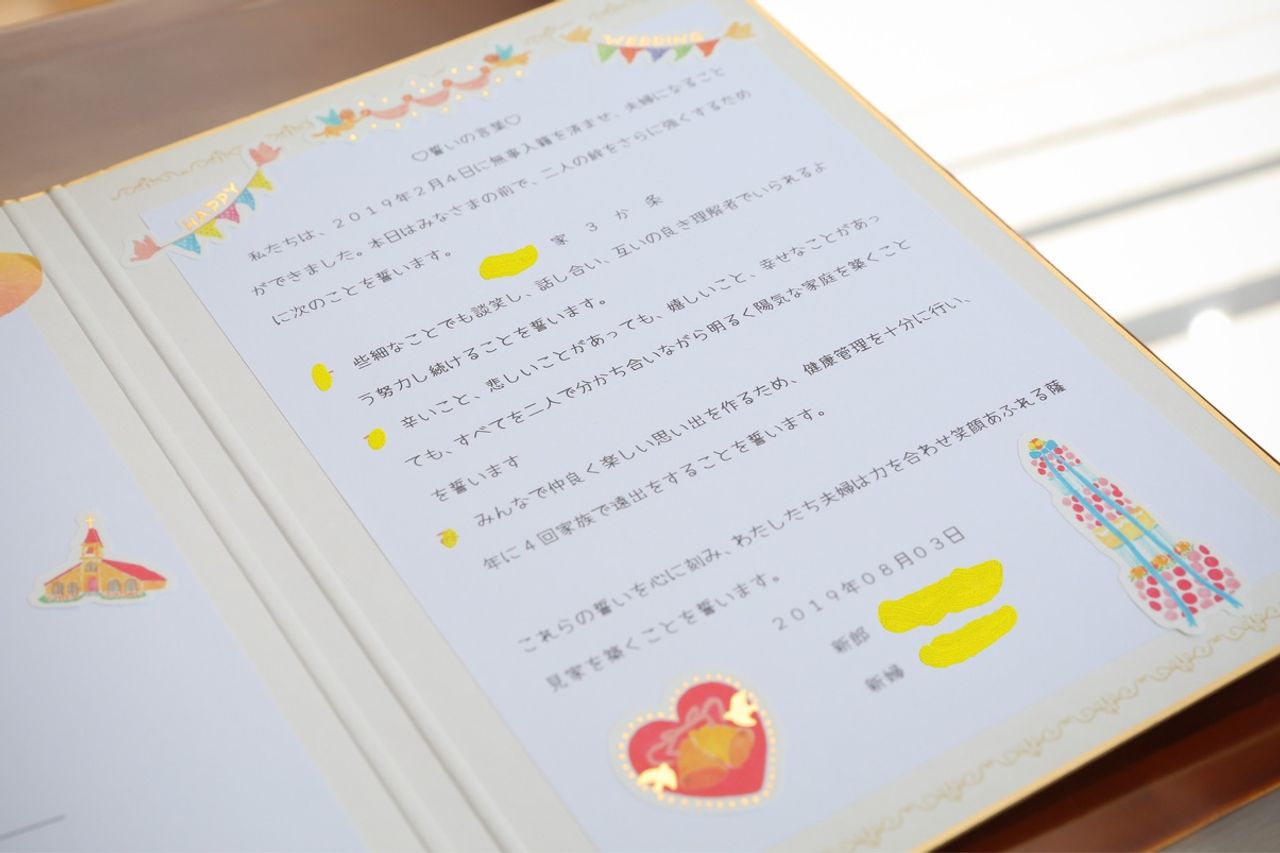 WEDDING
HAPPY
♡誓いの言葉♡
私たちは、2019年2月4日に無事入籍を済ませ、夫婦になること
ができました。本日はみなさまの前で、二人の絆をさらに強くするため
に次のことを誓います。
家 3 か 条
些細なことでも談笑し、話し合い、互いの良き理解者でいられるよ
う努力し続けることを誓います。
辛いこと、悲しいことがあっても、嬉しいこと、幸せなことがあっ
ても、すべてを二人で分かち合いながら明るく陽気な家庭を築くこと
を誓います
みんなで仲良く楽しい思い出を作るため、健康管理を十分に行い、
年に4回家族で遠出をすることを誓います。
これらの誓いを心に刻み、わたしたち夫婦は力を合わせ笑顔あふれる薩
見家を築くことを誓います。
2019年08月03日
新郎
新婦